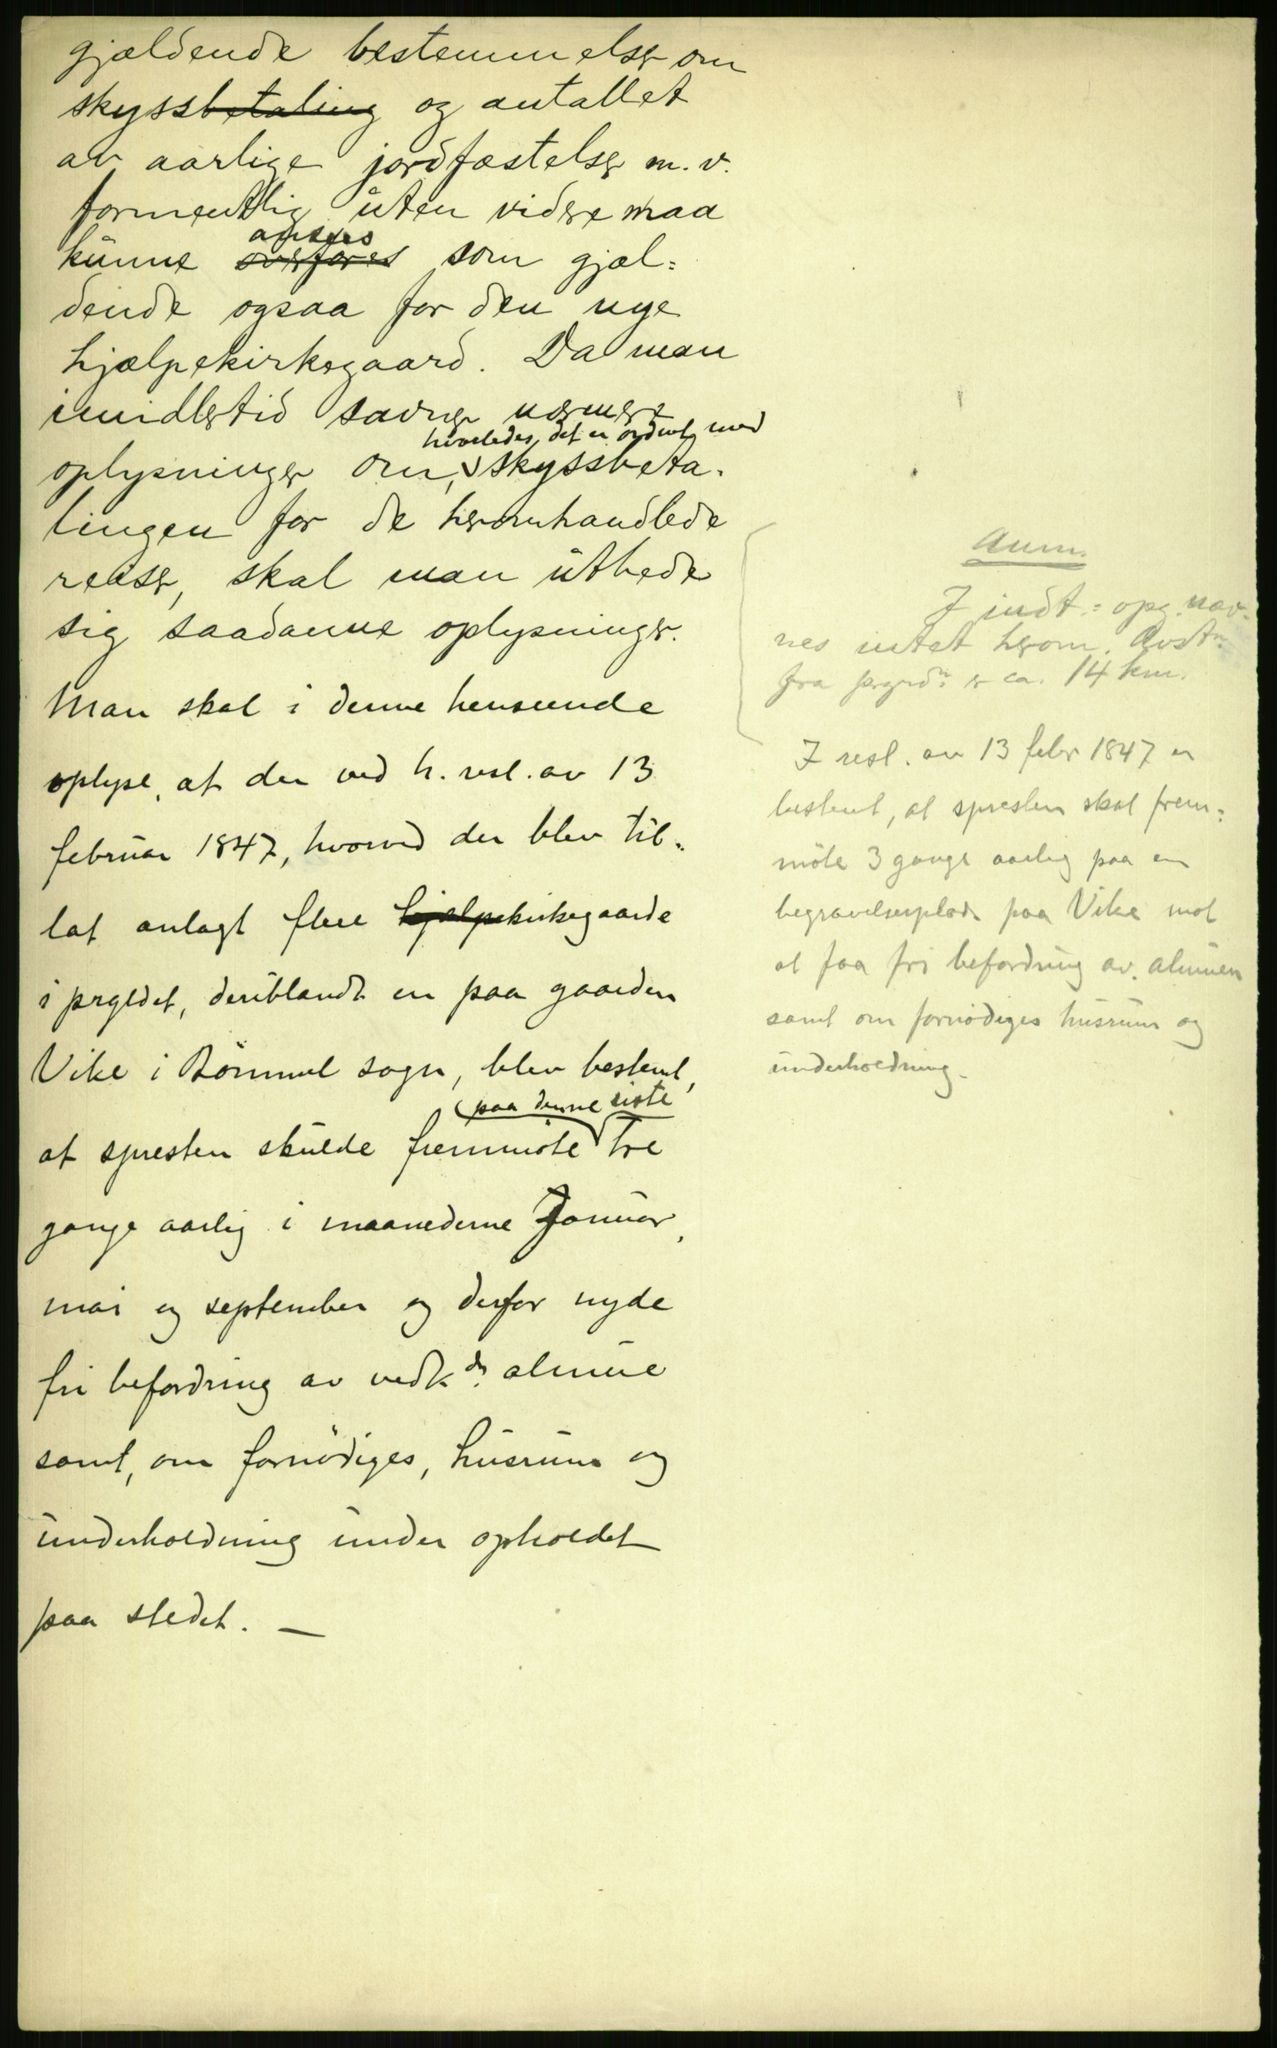 gjældende bestemmelser om
skyssbetaling og antallet
av aarlige jordfæstelser m.v.
formentlig uten videre maa
ansees
kunne overføres som gjæl=
dende ogsaa for den nye
hjælpekirkegaard. Da man
imidlertid savner nærmere
hvorledes det er ordnet med
oplysninger om, skyssbeta=
lingen for de heromhandlede
reiser, skal man utbede
sig saadanne oplysninger.
Man skal i denne henseende
oplyse, at der ved h. resl. av 13
februar 1847, hvorved der blev til=
lat anlagt flere hjælpekirkegaarde
i prgldet, deriblandt en paa gaarden
Vike i Bömmel sogn, blev bestemt,
paa denne siste
at spresten skulde fremmöte tre
gange aarlig i maanederne Januar,
mai og september og derfor nyde
fri befordring av vedk.de almue
samt, om fornödiges, husrum og
underholdning under opholdet
paa stedet. —
Anm.
I indt= opg. næv=
nes intet herom. Avst.n
fra prgrd.n er ca. 14 km.
I resl. av 13 febr 1847 er
bestemt, at spresten skal frem=
möte 3 gange aarlig paa en
begravelsesplads paa Vike mot
at faa fri befordring av almuen
samt om fornödiges husrum og
underholdning.